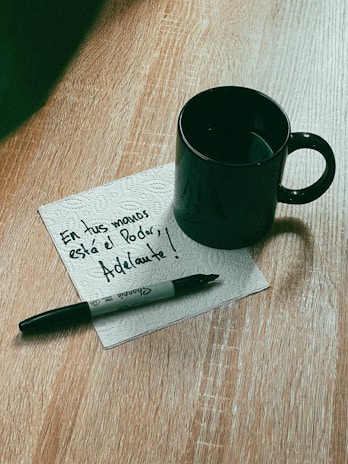 En tus manos
está el Poder,
Adelante!
Sharpie